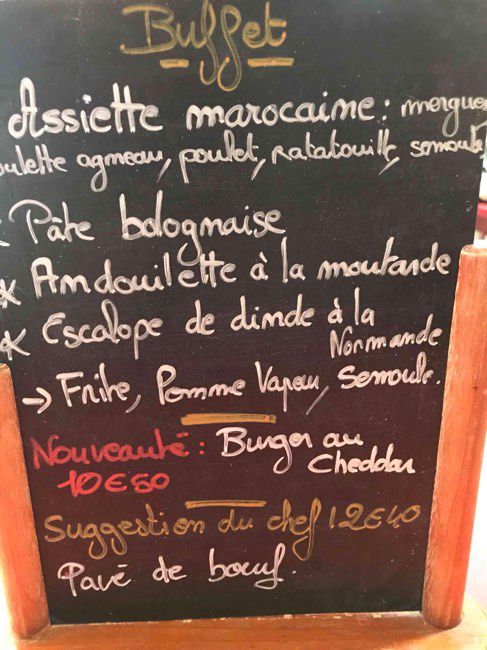 Buffet
Assiette marocaine: mergue
oulette agneau, poulet, ratatouille, semoule
Pâte bolognaise
* Andouillette à la moutarde
* Escalope de dinde à la
Normande
→ Frite, Pomme Vapeur, Semoule.
Nouveauté: Burger au
Cheddar
10€50
Suggestion du chef 12€40
Pavé de bœuf.